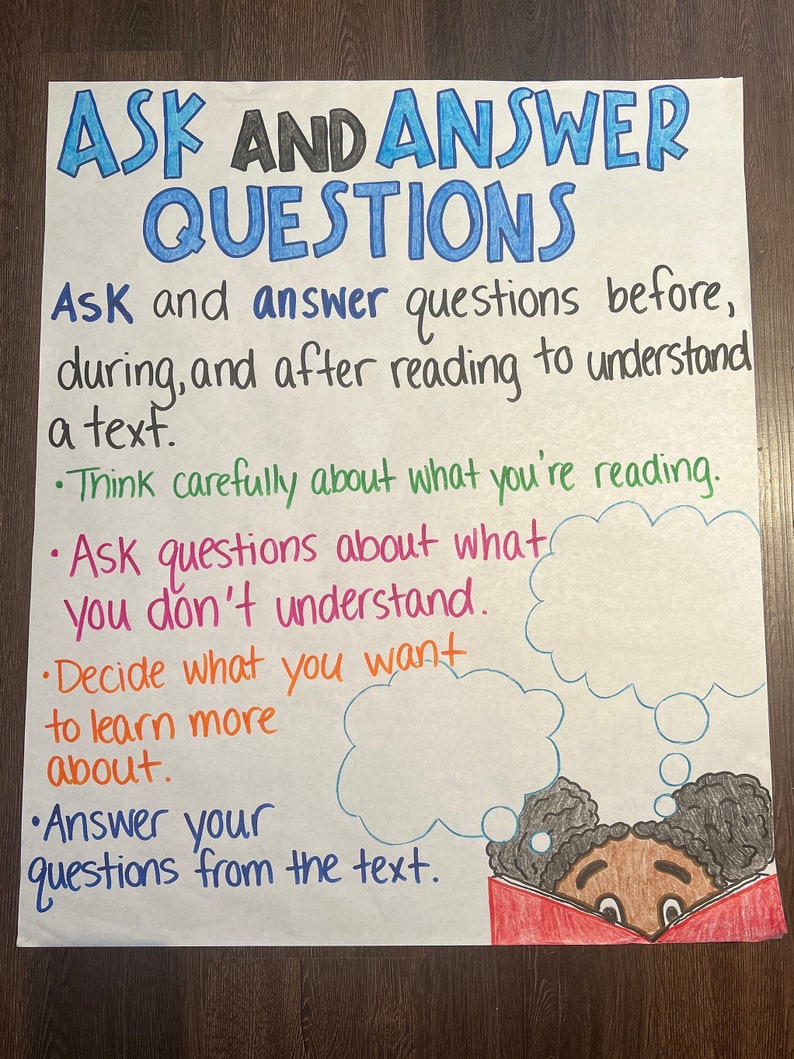 ASK AND ANSWER
QUESTIONS
Ask and answer questions before,
during, and after reading to understand
a text.
• Think carefully about what you're reading.
• Ask questions about what
you don't understand.
• Decide what you want
to learn more
about.
• Answer your
questions from the text.